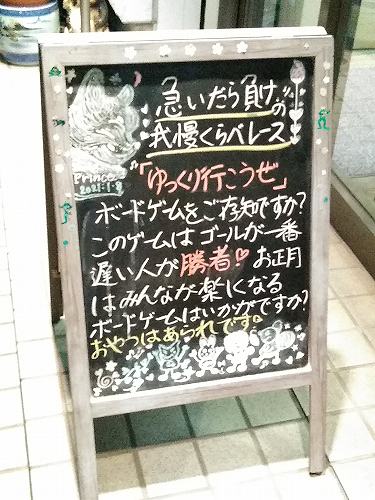 急いたら負けの
我慢くらべレース
Prince
2021.1.9
「ゆっくり行こうぜ」
ボードゲームをご存知ですか?
このゲームはゴールが一番
遅い人が勝者! お正月
はみんなが楽しくなる
ボードゲームはいかがですか?
おやつはあられです。